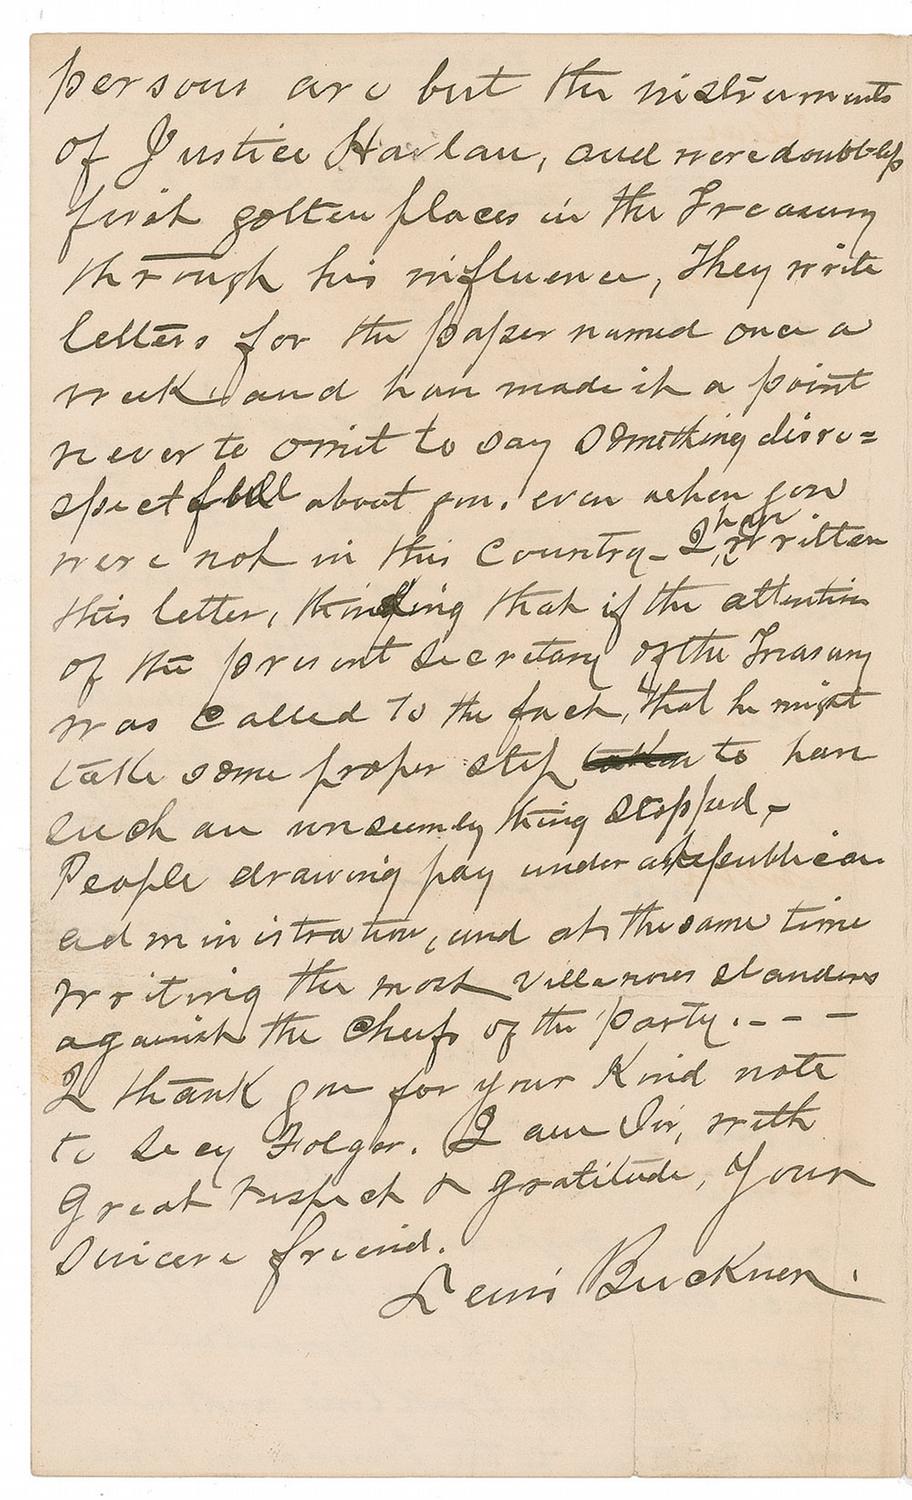 persons are but the instruments
of Justice Harlan, and were doubtless
first gotten places in the Treasury
through his influence, They write
letters for the paper named once a
week and have made it a point
never to omit to say something disre=
spectfull about you. even when you
were not in this Country_ I have written
this letter, thinking that if the attention
of the present Secretary of the Treasury
was called to the fact, that he might
take some proper step taken to have
such an unseemly thing stopped,-
People drawing pay under a Republican
administration, and at the same time
writing the most villanous slanders
against the Cheifs of the party. - - -
I thank you for your Kind note
to Secy Folger. I am Sir, with
Great respect & gratitude, Your
Sincere friend.
Lewis Buckner.